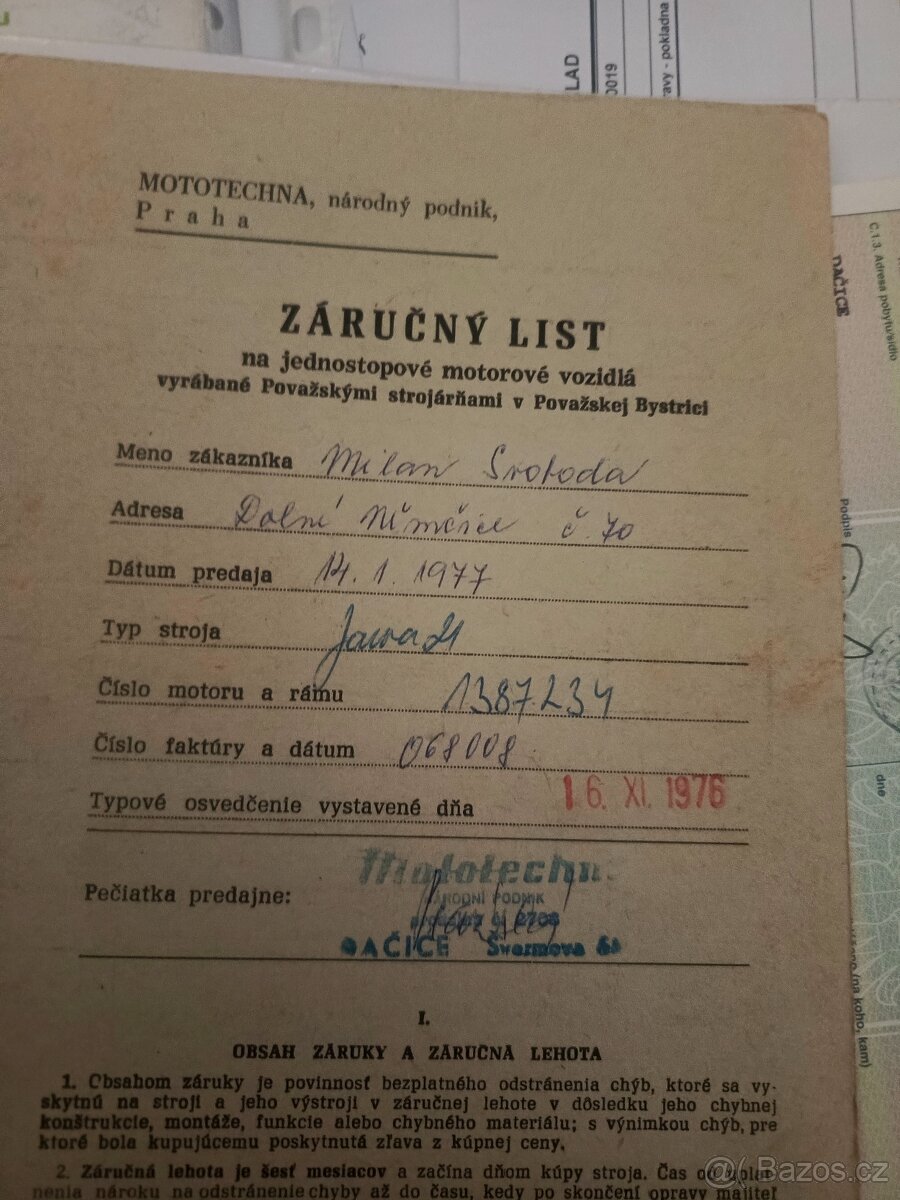 LAD
0019
ravy - pokladna
MOTOTECHNA, národný podnik,
Praha
ZÁRUČNÝ LIST
na jednostopové motorové vozidlá
vyrábané Považskými strojárňami v Považskej Bystrici
Meno zákazníka Milan Svoboda
Adresa Dolní Němčice č. 70
Dátum predaja 14. 1. 1977
Typ stroja Jawa 21
Číslo motoru a rámu 1387234
Číslo faktúry a dátum 068008
Typové osvedčenie vystavené dňa 16. XI. 1976
Pečiatka predajne:
Mototechna
NÁRODNÍ PODNIK
DAČICE Švermova
I.
OBSAH ZÁRUKY A ZÁRUČNÁ LEHOTA
1. Obsahom záruky je povinnosť bezplatného odstránenia chýb, ktoré sa vy-
skytnú na stroji a jeho výstroji v záručnej lehote v dôsledku jeho chybnej
konštrukcie, montáže, funkcie alebo chybného materiálu; s výnimkou chýb, pre
ktoré bola kupujúcemu poskytnutá zľava z kúpnej ceny.
2. Záručná lehota je šesť mesiacov a začína dňom kúpy stroja. Čas od
nenia nároku na odstránenie chyby až do času, kedy po skončení opravy majiteľ
Č.1.3. Adresa pobytu/sídlo
DAČICE
Podpis
dne
(na koho, kam)
Bazos.cz